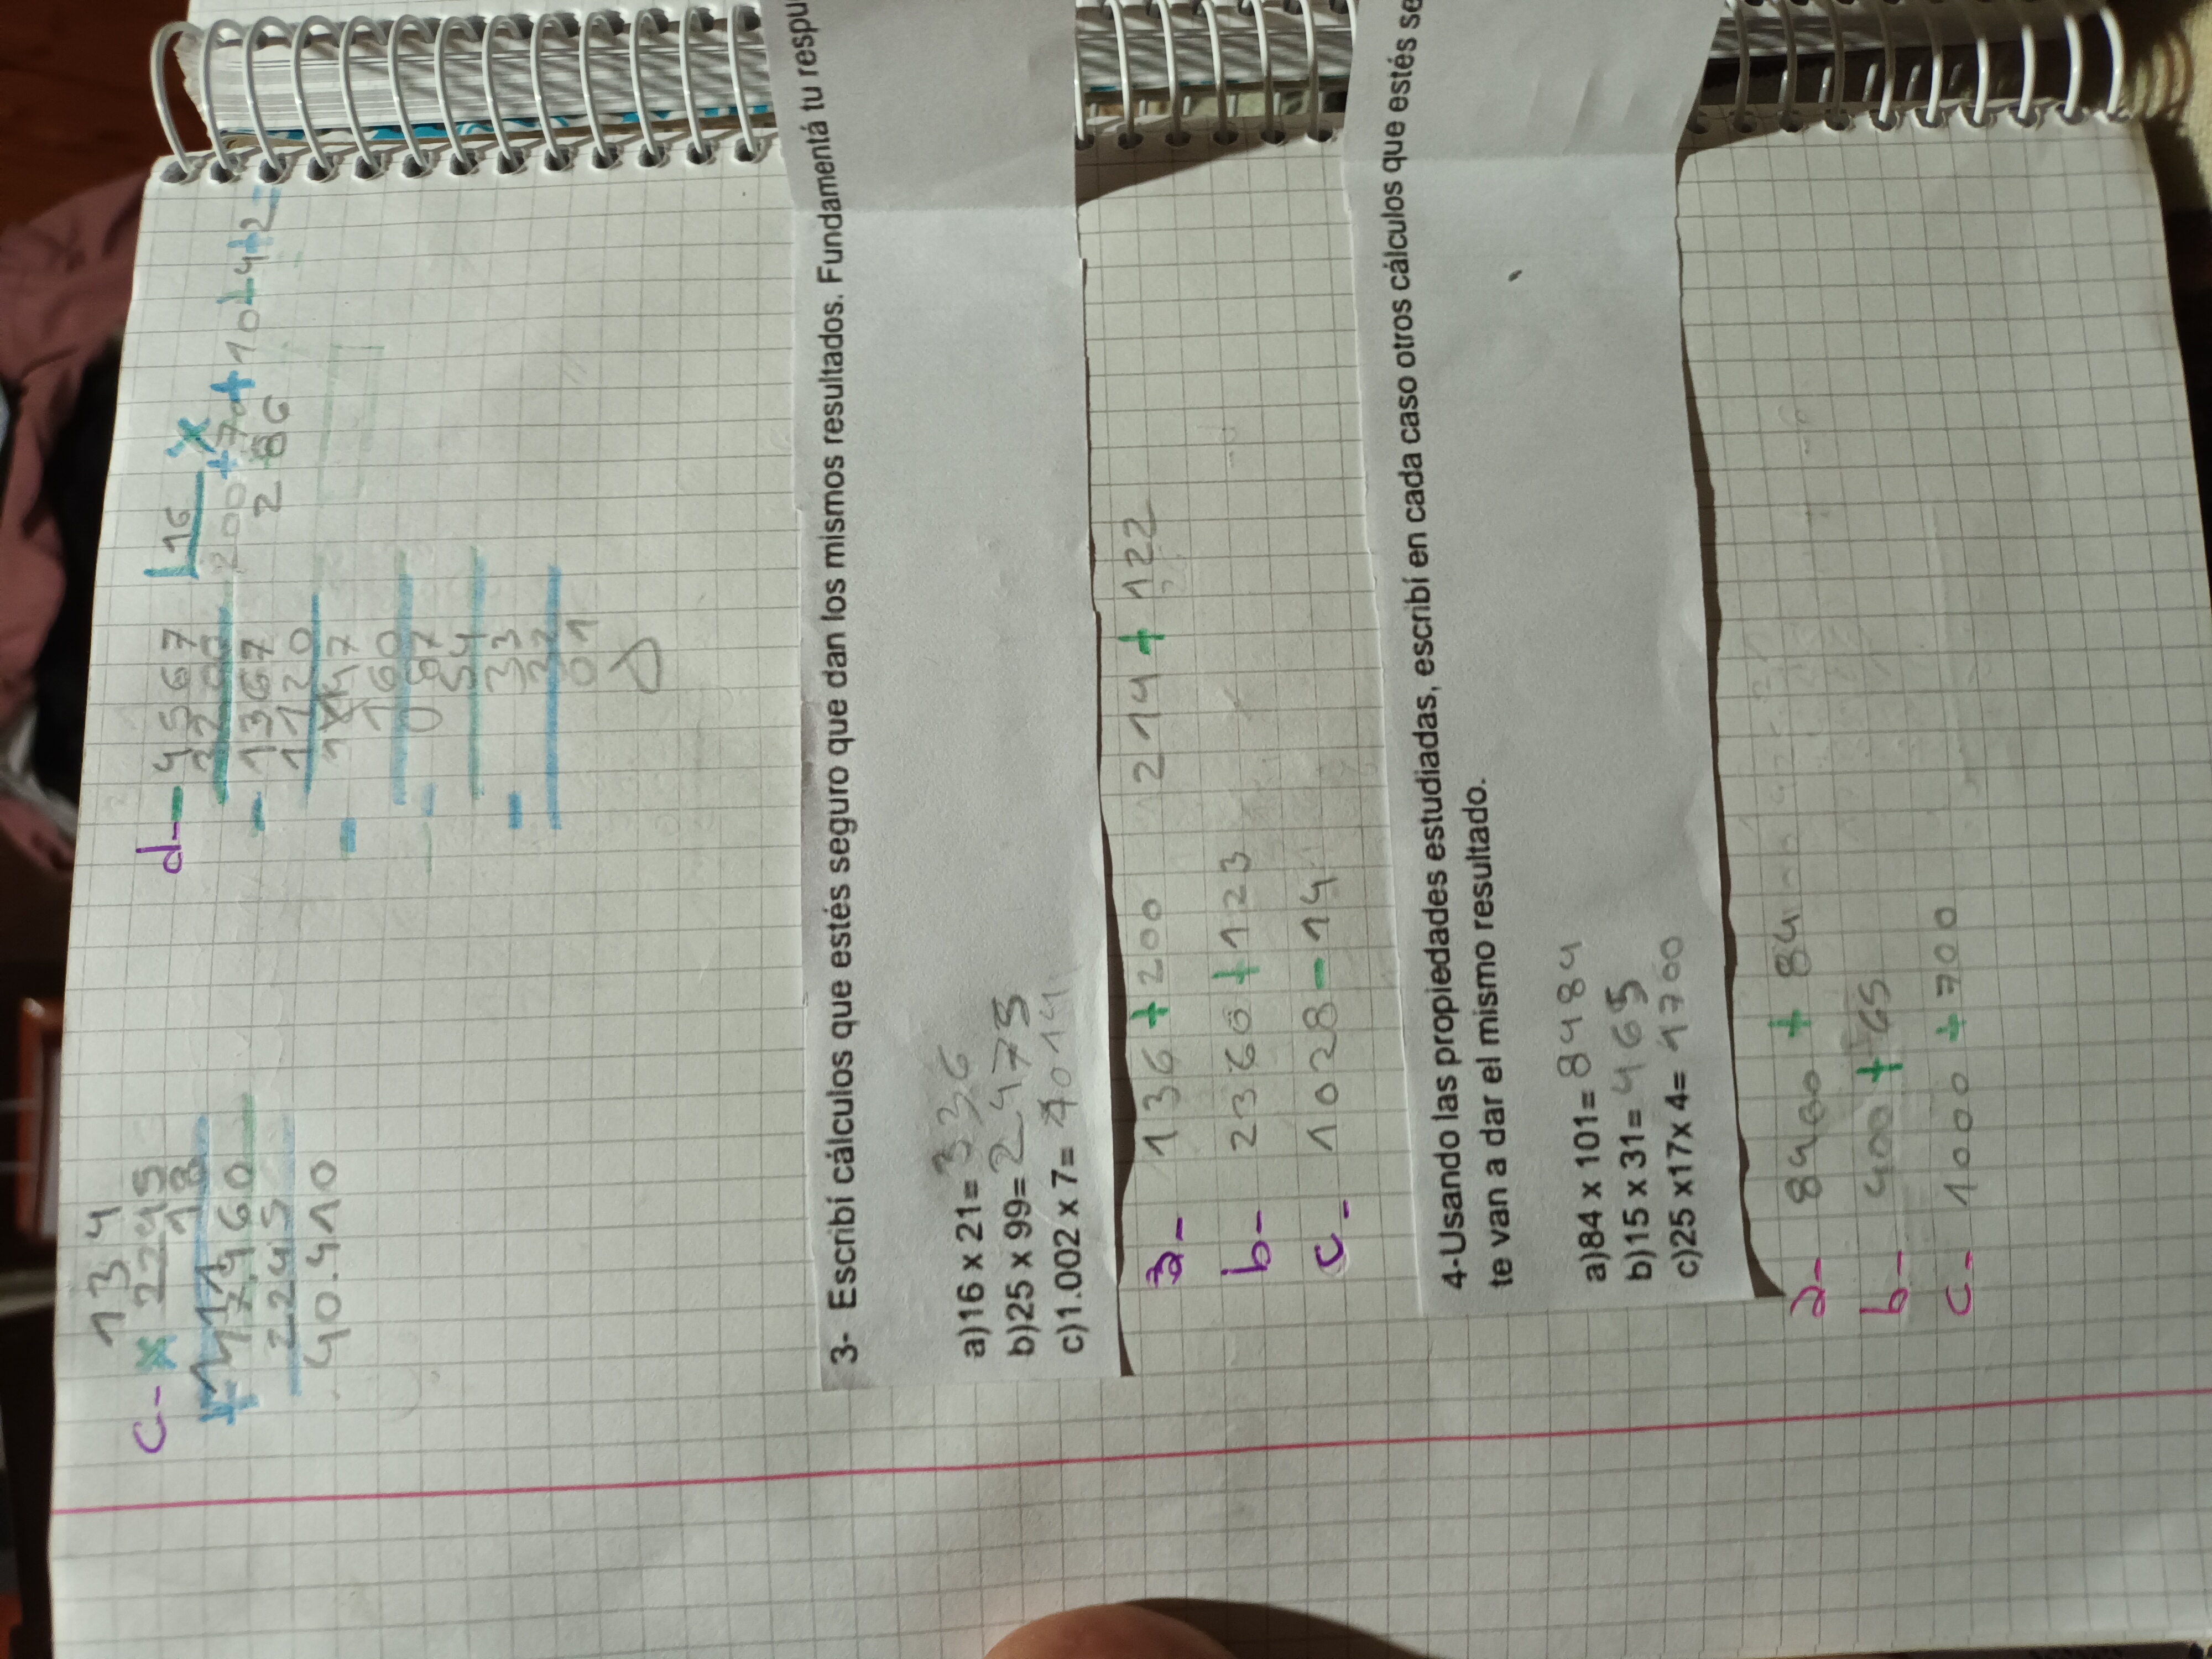 134
c- x 2245
18
+ 17960
2245
40.410
d- - 4567 | 16 x
3200 200+70+10+4+2=
- 1367 286
1120
- 147
160
- 087
54
- 33
32
01
3- Escribí cálculos que estés seguro que dan los mismos resultados. Fundamentá tu respu
a)16 x 21= 336
b)25 x 99= 2475
c)1.002 x 7= 7014
a- 136 + 200 214 + 122
b- 2360 + 123
c- 1028 - 14
4-Usando las propiedades estudiadas, escribí en cada caso otros cálculos que estés se
te van a dar el mismo resultado.
a)84 x 101= 8484
b)15 x 31= 465
c)25 x17x 4= 1700
a- 8400 + 84
b- 400 + 65
c- 1000 + 700